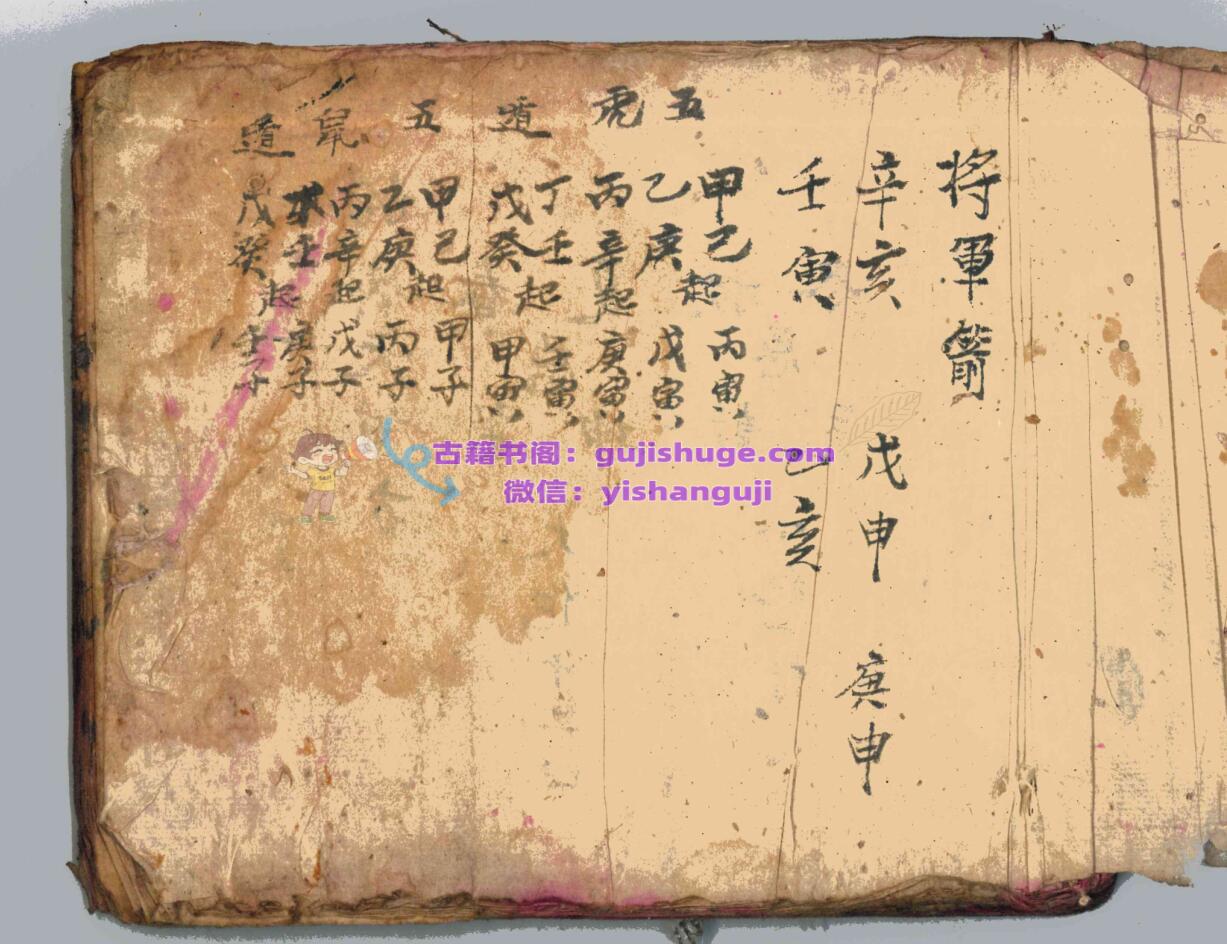 将軍箭
辛亥 戊申 庚申
壬寅 乙亥
五虎遁
甲己起丙寅
乙庚起戊寅
丙辛起庚寅
丁壬起壬寅
戊癸起甲寅
五鼠遁
甲己起甲子
乙庚起丙子
丙辛起戊子
壬起庚子
戊癸起壬子
古籍书阁：gujishuge.com
微信：yishanguji